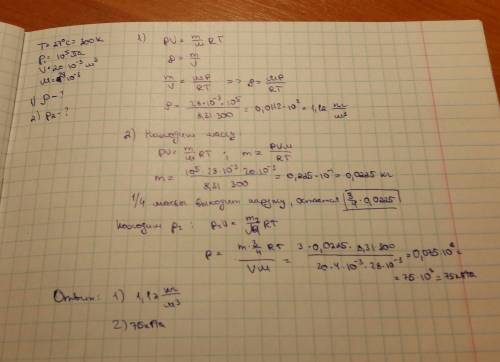 T = 27°C = 300 K
P₁ = 10⁵ Па
V = 20·10⁻³ м³
M = 28·10⁻³
1) ρ - ?
2) p₂ - ?
1) PV = m/M RT
ρ = m/V
m/V = MP/RT => ρ = MP/RT
ρ = 28·10⁻³·10⁵ / 8,31·300 = 0,0112·10² = 1,12 кг/м³
2) Находим массу:
PV = m/M RT ; m = PVM/RT
m = 10⁵·28·10⁻³·20·10⁻³ / 8,31·300 = 0,225·10⁻¹ = 0,0225 кг
1/4 массы выходит наружу, остается 3/4·0,0225
Находим p₂: p₂V = m₂/M RT
P = m·3/4 RT / VM = 3·0,0225·8,31·300 / 20·4·10⁻³·28·10⁻³ = 0,075·10⁶ =
= 75·10³ = 75 кПа
Ответ: 1) 1,12 кг/м³
2) 75 кПа